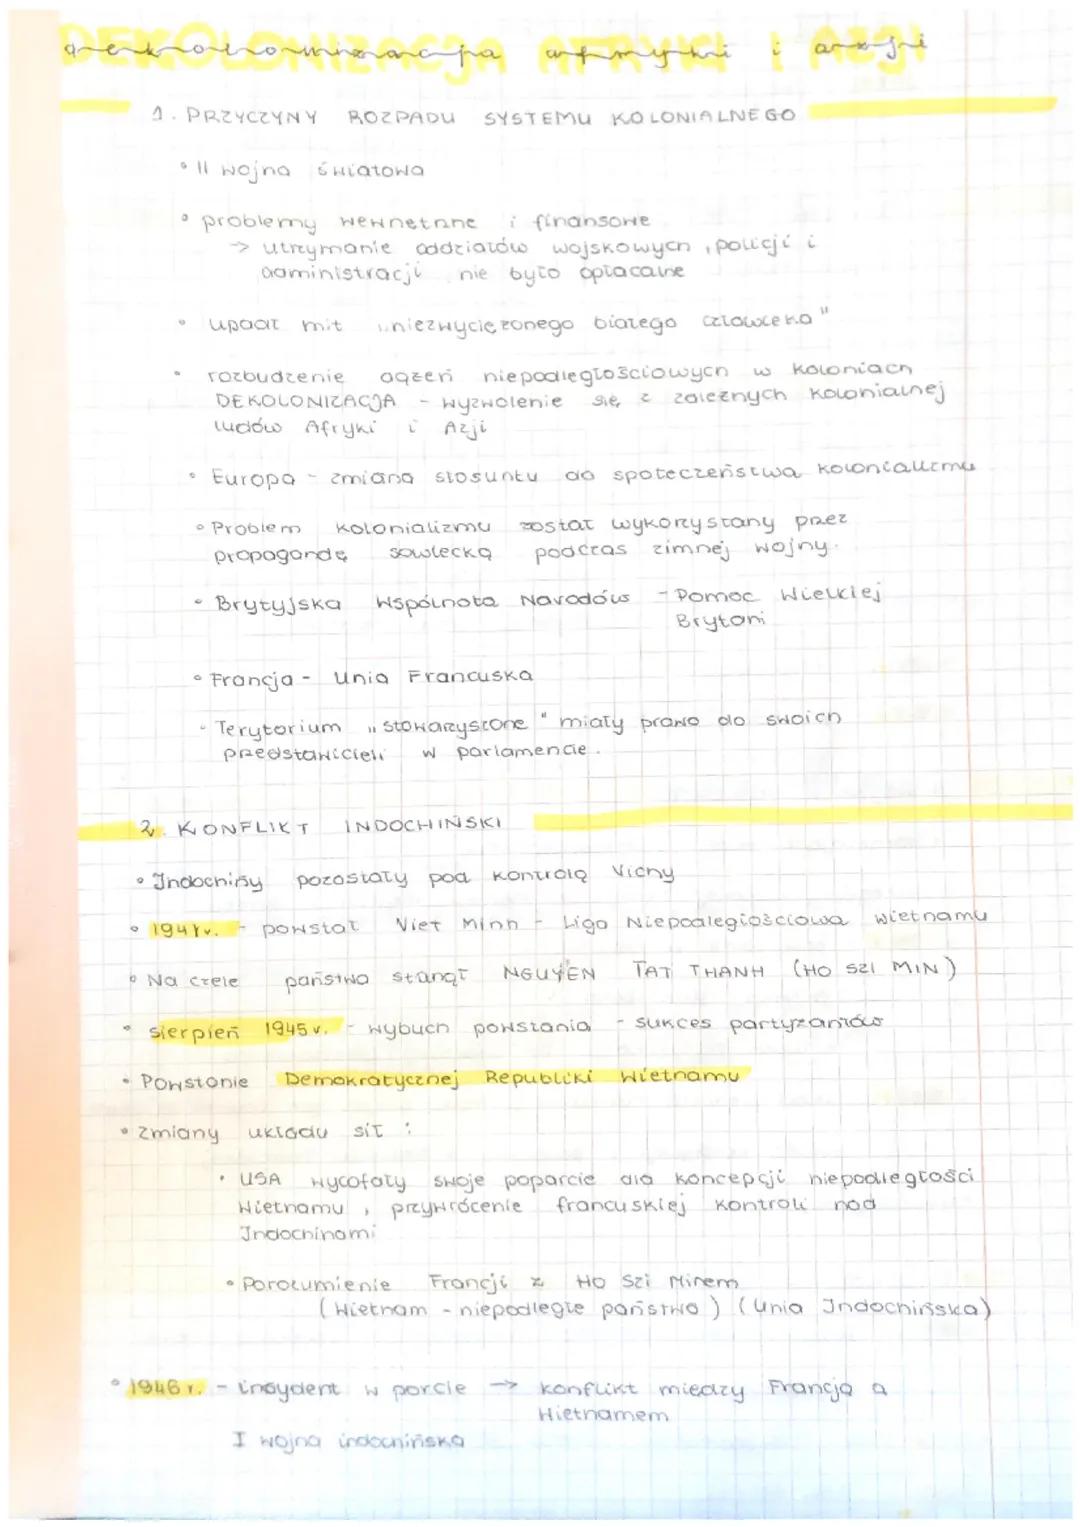 DEKOLONIZACJA AFRYKI i AZJI
dekolonizacja afryki i azji
1. PRZYCZYNY ROZPADU SYSTEMU KOLONIALNEGO
• II wojna światowa
• problemy wewnętrzne i finansowe
→ utrzymanie oddziałów wojskowych, policji i
administracji nie było opłacalne
• upadł mit „niezwyciężonego białego człowieka"
• rozbudzenie dążeń niepodległościowych w koloniach
DEKOLONIZACJA - wyzwolenie się z zależnych kolonialnej
ludów Afryki i Azji
• Europa - zmiana stosunku do społeczeństwa kolonializmu
• Problem kolonializmu został wykorzystany przez
propagandę sowiecką podczas zimnej wojny.
• Brytyjska Wspólnota Narodów - Pomoc Wielkiej
Brytani
• Francja - Unia Francuska
- Terytorium „stowarzyszone" miały prawo do swoich
przedstawicieli w parlamencie.
2. KONFLIKT INDOCHIŃSKI
• Indochiny pozostały pod kontrolą Vichy
• 1941r. - powstał Viet Minh - Liga Niepodległościowa Wietnamu
• Na czele państwa stanął NGUYEN TAT THANH (HO SZI MIN)
• sierpień 1945r. - wybuch powstania - sukces partyzantów
• Powstanie Demokratycznej Republiki Wietnamu
• zmiany układu sił :
• USA wycofały swoje poparcie dla koncepcji niepodległości
Wietnamu, przywrócenie francuskiej kontroli nad
Indochinami
• Porozumienie Francji z Ho Szi Minem
(Wietnam - niepodległe państwo) (Unia Indochińska)
• 1946r. - incydent w porcie → konflikt między Francją a
Wietnamem
I wojna indochińska